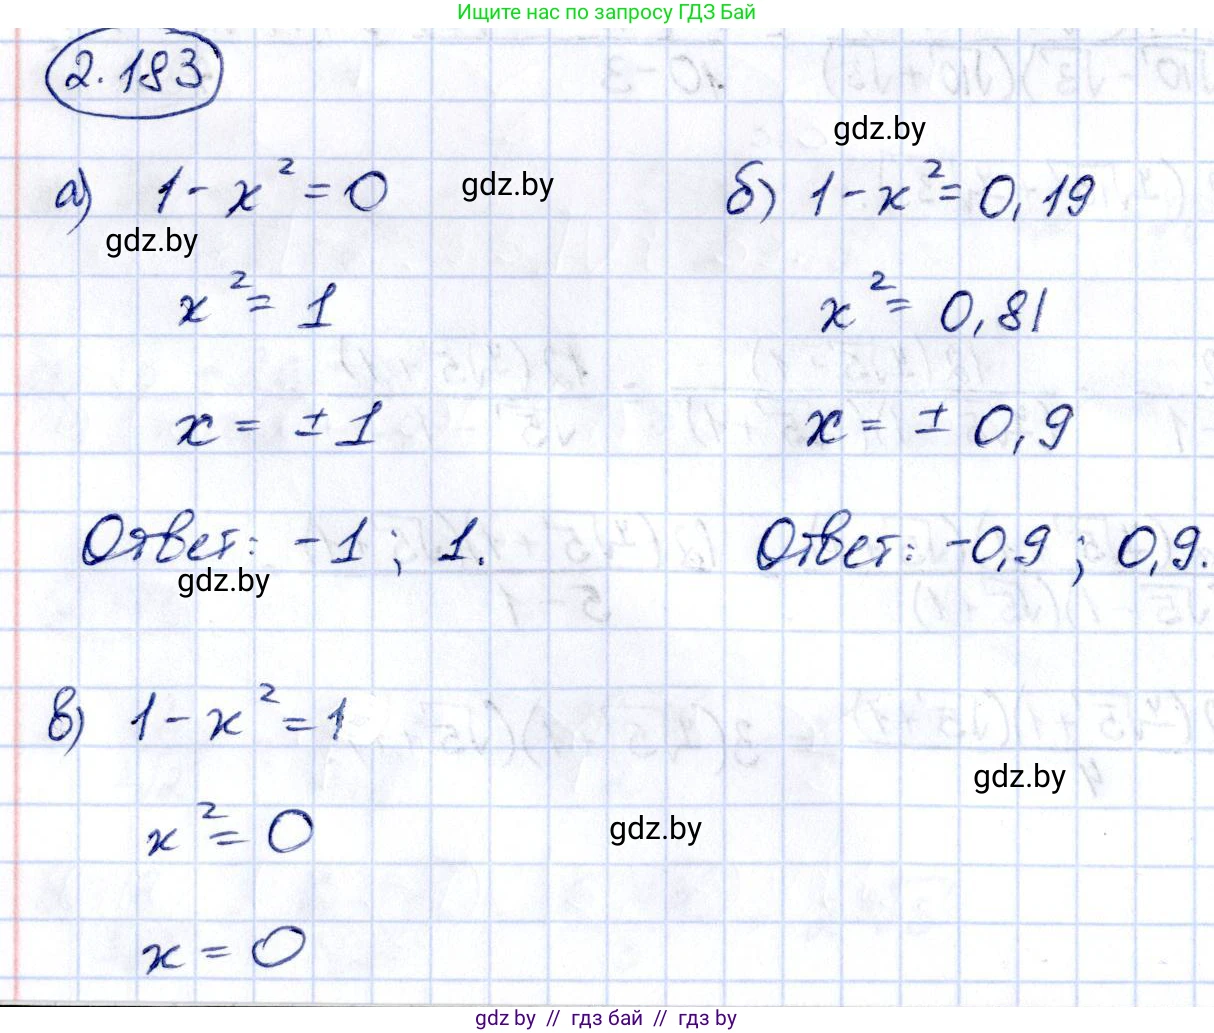 Ищите нас по запросу ГДЗ Бай
2.183
а) 1 - x² = 0
gdz.by
gdz.by
x² = 1
x = ± 1
Ответ: -1 ; 1.
gdz.by
gdz.by
б) 1 - x² = 0,19
x² = 0,81
x = ± 0,9
Ответ: -0,9 ; 0,9.
в) 1 - x² = 1
gdz.by
x² = 0
gdz.by
x = 0
gdz.by // гдз бай // гдз by